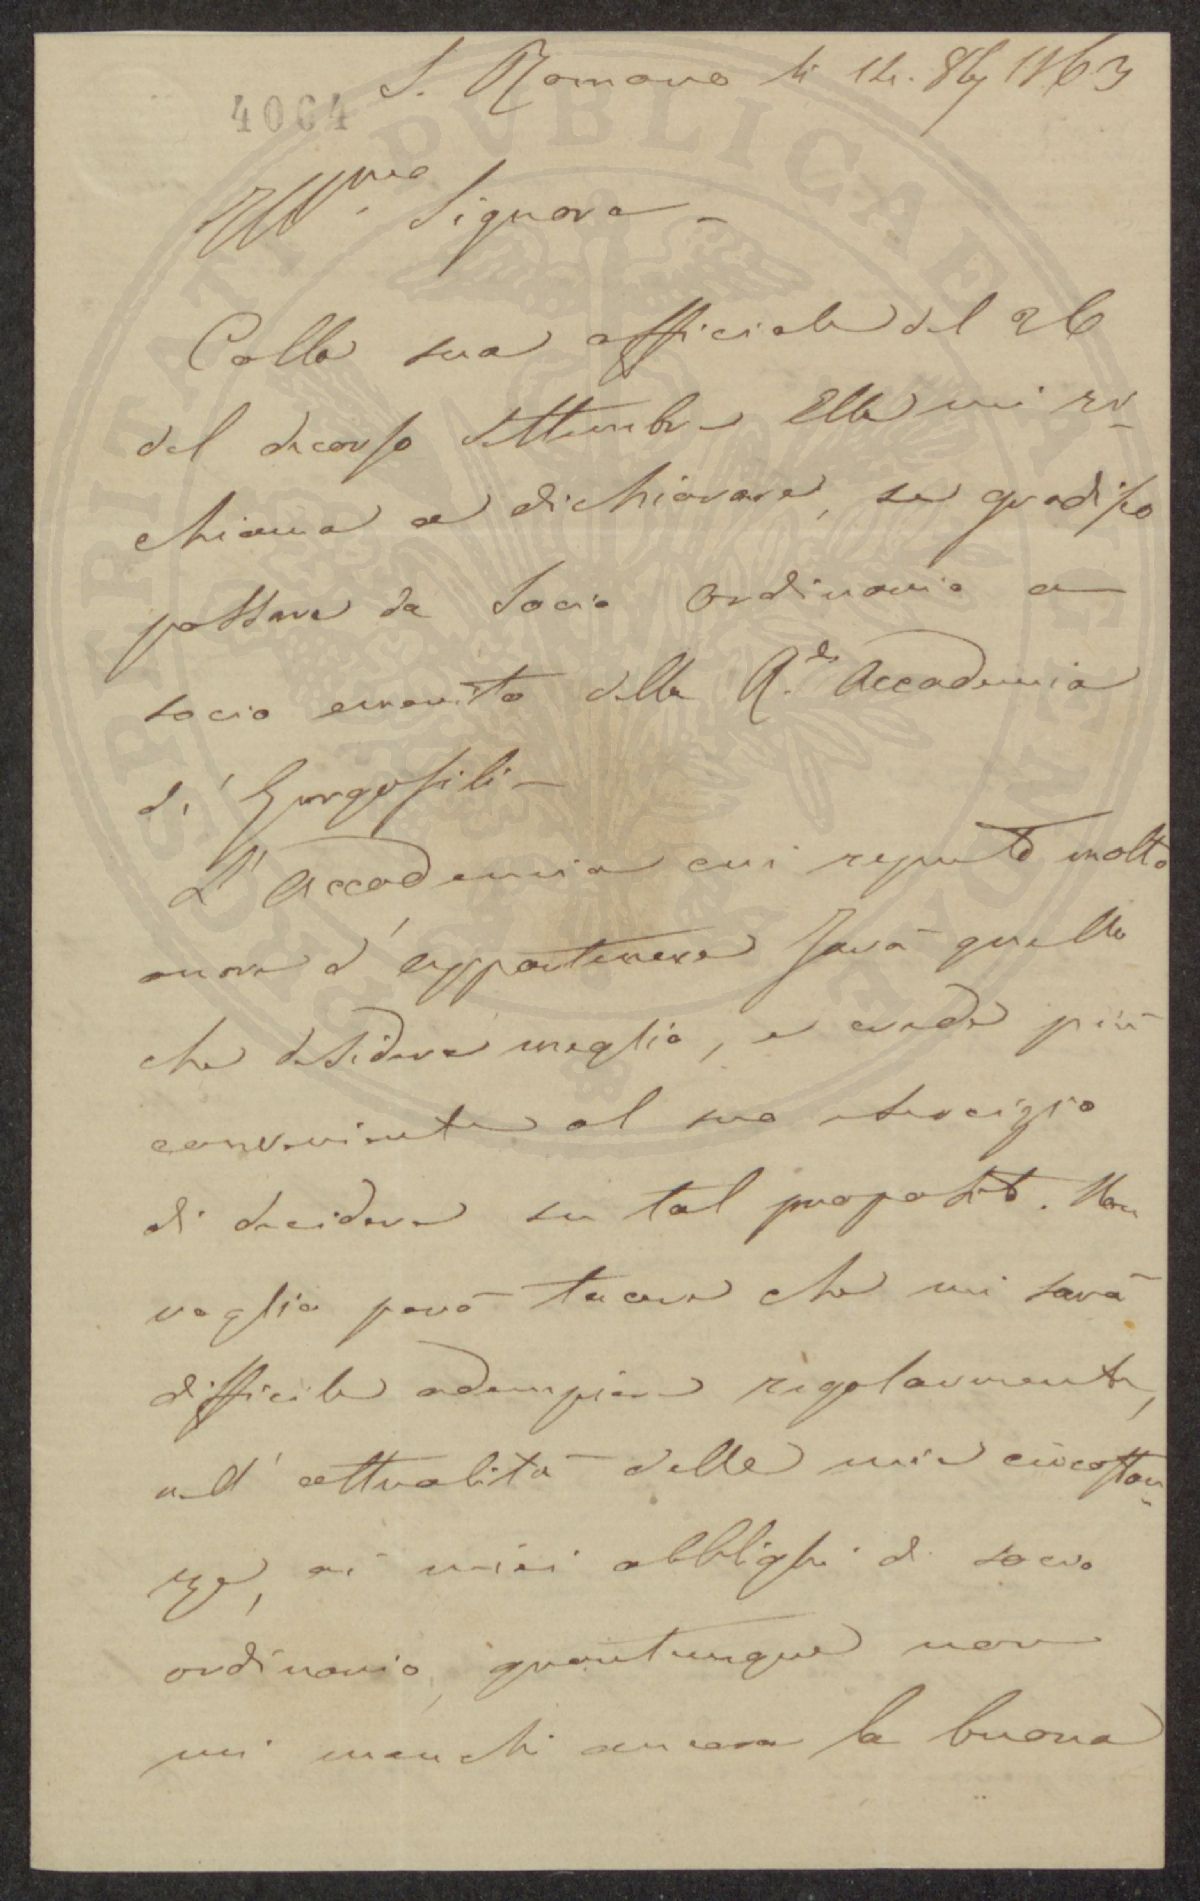 S. Romano li 12. 8bre 1863
4064
Ill.mo Signore –
Colla sua officiale del 26
del decorso Settembre Ella mi ri-
chiama a dichiarare, se gradisco
passare da Socio Ordinario a
socio emerito della R.le Accademia
de' Georgofili –
L'Accademia cui reputo molto
onore d'appartenere farà quello
che desidera meglio, e crede più
conveniente al suo esercizio
di decidere su tal proposito. Non
voglio però tacere che mi sarà
difficile adempiere regolarmente,
nell'attualità delle mie circostan-
ze, ai miei obblighi di socio
ordinario, quantunque non
mi manchi ancora la buona